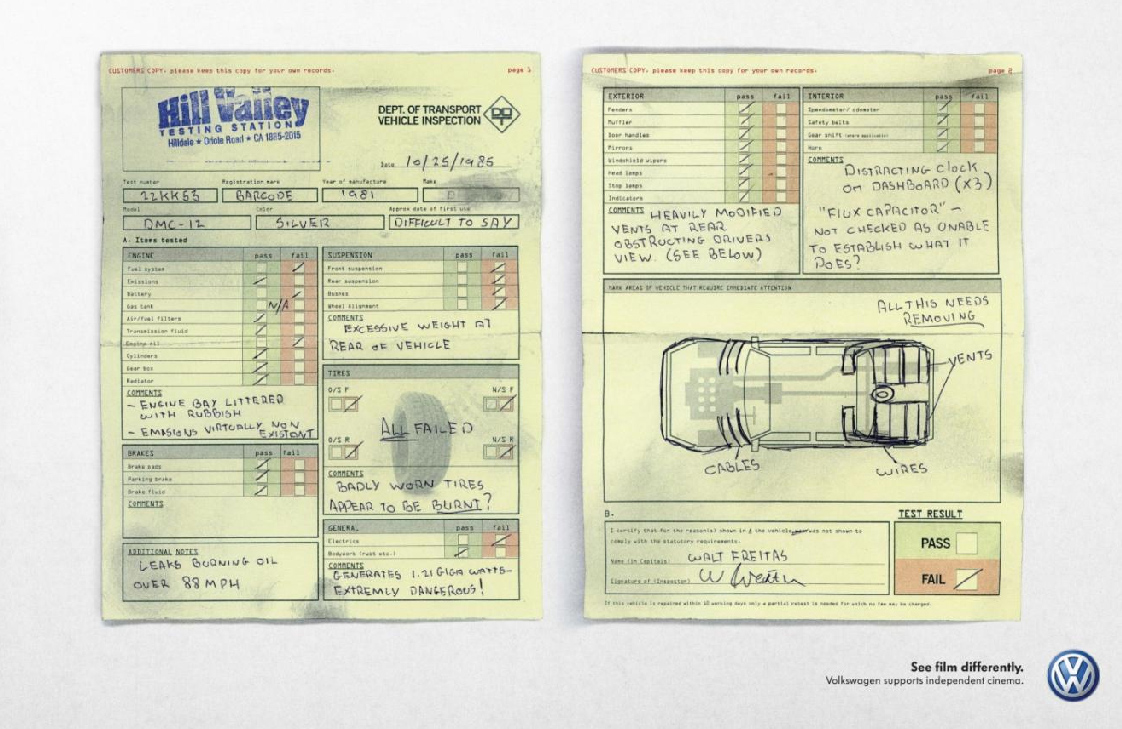 CUSTOMERS COPY: please keep this copy for your own records. page 1
Hill Valley
TESTING STATION
Hilldale ★ Oriole Road ★ CA 1885-2015
DEPT. OF TRANSPORT
VEHICLE INSPECTION
Date 10/25/1985
Test number Registration mark Year of manufacture Make
22KK63 BARCODE 1981 D
Model Color Approx date of first use
DMC-12 SILVER DIFFICULT TO SAY
A. Items tested
ENGINE pass fail
Fuel system
Emissions
Battery
Gas tank N/A
Air/fuel filters
Transmission fluid
Engine oil
Cylinders
Gear box
Radiator
COMMENTS
- ENGINE BAY LITTERED
WITH RUBBISH
- EMISSIONS VIRTUALLY NON
EXISTANT
BRAKES pass fail
Brake pads
Parking brake
Brake fluid
COMMENTS
ADDITIONAL NOTES
LEAKS BURNING OIL
OVER 88 MPH
SUSPENSION pass fail
Front suspension
Rear suspension
Bushes
Wheel Alignment
COMMENTS
EXCESSIVE WEIGHT AT
REAR OF VEHICLE
TIRES
O/S F N/S F
ALL FAILED
O/S R N/S R
COMMENTS
BADLY WORN TIRES
APPEAR TO BE BURNT?
GENERAL pass fail
Electrics
Bodywork (rust etc.)
COMMENTS
GENERATES 1.21 GIGA WATTS-
EXTREMLY DANGEROUS!
CUSTOMERS COPY: please keep this copy for your own records. page 2
EXTERIOR pass fail
Fenders
Muffler
Door handles
Mirrors
Windshield wipers
Head lamps
Stop lamps
Indicators
COMMENTS HEAVILY MODIFIED
VENTS AT REAR
OBSTRUCTING DRIVERS
VIEW. (SEE BELOW)
INTERIOR pass fail
Speedometer/ odometer
Safety belts
Gear shift (where applicable)
Horn
COMMENTS
DISTRACTING CLOCK
ON DASHBOARD (X3)
"FLUX CAPACITOR" -
NOT CHECKED AS UNABLE
TO ESTABLISH WHAT IT
DOES?
MARK AREAS OF VEHICLE THAT REQUIRE IMMEDIATE ATTENTION
ALL THIS NEEDS
REMOVING
VENTS
CABLES
WIRES
B.
I certify that for the reason(s) shown in A the vehicle was not shown to
comply with the statutory requirements.
Name (in Capitals) WALT FREITAS
Signature of (Inspector)
TEST RESULT
PASS
FAIL
If this vehicle is repaired within 10 working days only a partial retest is needed for which no fee may be charged.
See film differently.
Volkswagen supports independent cinema.
VW